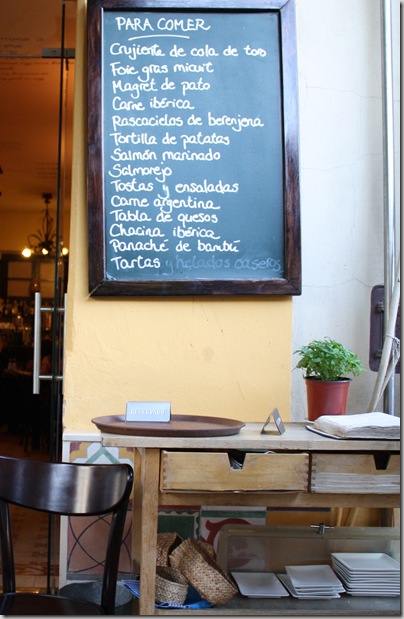 PARA COMER
Crujiente de cola de toro
Foie gras micuit
Magret de pato
Carne ibérica
Rascacielos de berenjena
Tortilla de patatas
Salmón marinado
Salmorejo
Tostas y ensaladas
Carne argentina
Tabla de quesos
Chacina ibérica
Panaché de bambú
Tartas y helados caseros
RESERVADO